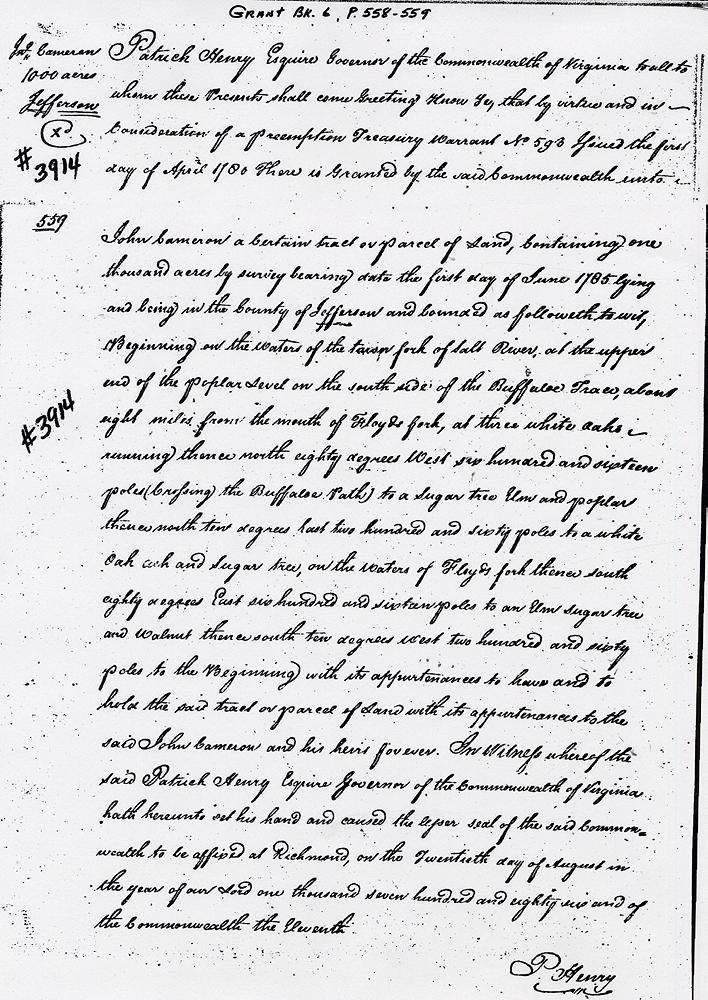 GRANT BK. 6, P. 558-559
Jno Cameron
1000 acres
Jefferson
Xd
#3914
Patrick Henry Esquire Governor of the Commonwealth of Virginia to all to
whom these Presents shall come Greeting Know Ye, that by virtue and in
Consideration of a preemption Treasury Warrant No 593 Issued the first
day of April 1780 There is Granted by the said Commonwealth unto
559
John Cameron a Certain tract or parcel of Land, Containing one
thousand acres by survey bearing date the first day of June 1785 lying
and being in the County of Jefferson and bounded as followeth to wit,
Beginning on the Waters of the fork of Salt River, at the upper
end of the Poplar Level on the south side of the Buffaloe Trace, about
#3914
eight miles from the mouth of Floyds fork, at three white oaks
running thence north eighty degrees West six hundred and sixteen
poles (Crossing the Buffaloe Path) to a Sugar tree Elm and poplar
thence north ten degrees East two hundred and sixty poles to a white
Oak ash and Sugar tree, on the Waters of Floyds fork thence south
eighty degrees East six hundred and sixteen poles to an Elm Sugar tree
and Walnut thence south ten degrees west two hundred and sixty
poles to the Beginning with its appurtenances to have and to
hold the said tract or parcel of Land with its appurtenances to the
said John Cameron and his heirs forever. In Witness whereof the
said Patrick Henry Esquire Governor of the Commonwealth of Virginia
hath hereunto set his hand and caused the lesser seal of the said Common=
wealth to be affixed at Richmond, on the Twentieth day of August in
the year of our Lord one thousand seven hundred and eighty six and of
the Commonwealth the Eleventh
P. Henry